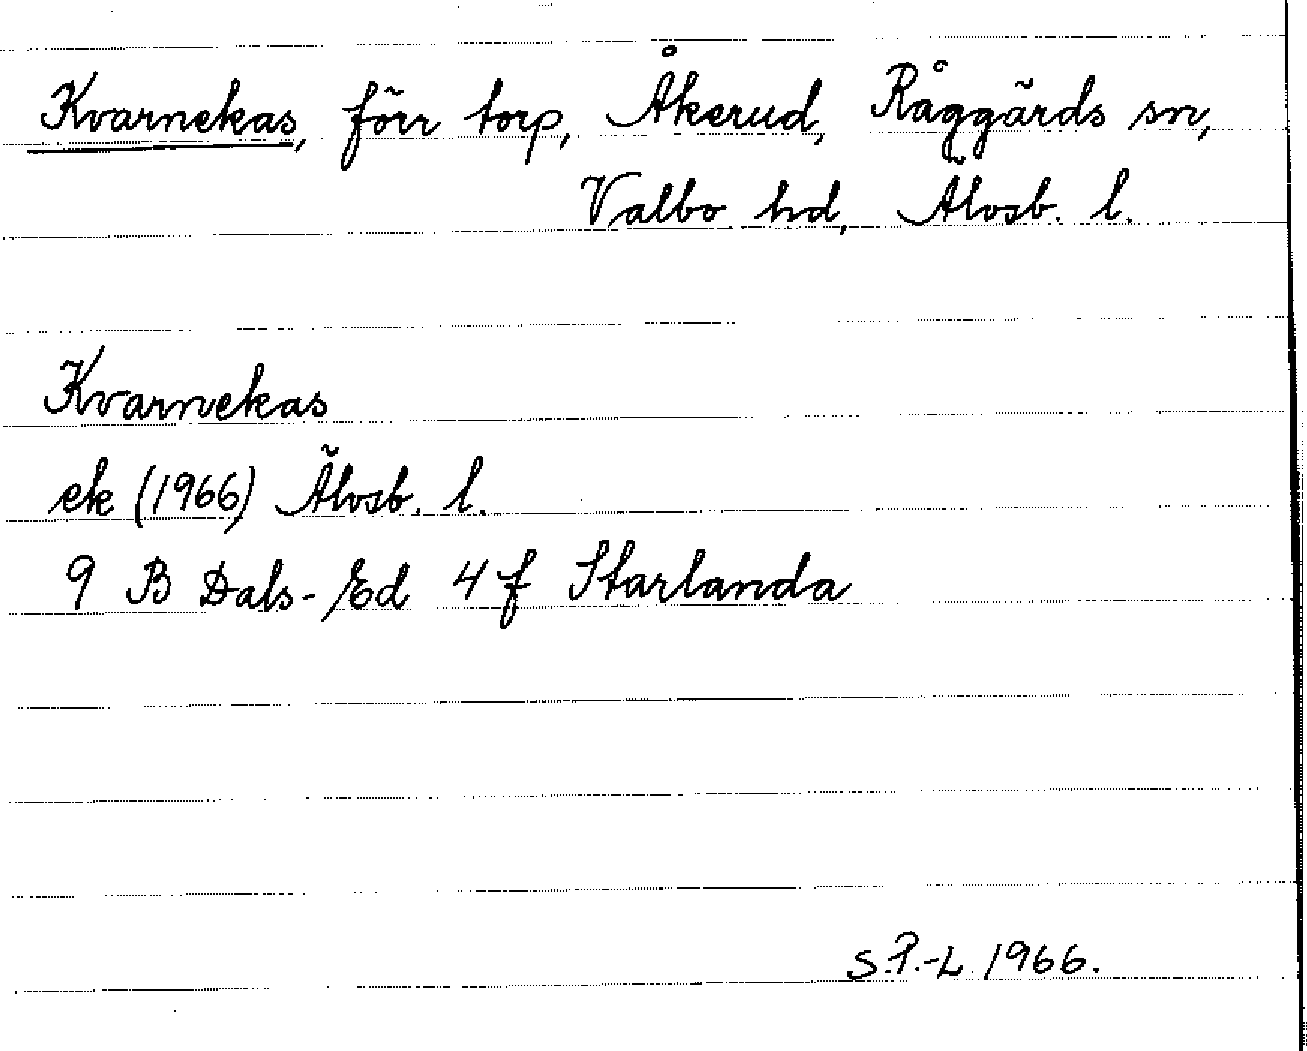 Kvarnekas, förr torp, Åkerud, Råggärds sn,
Valbo hd, Älvsb. l.
Kvarnekas
ek (1966) Älvsb. l.
9 B Dals-Ed 4f Starlanda
S.P.-L 1966.